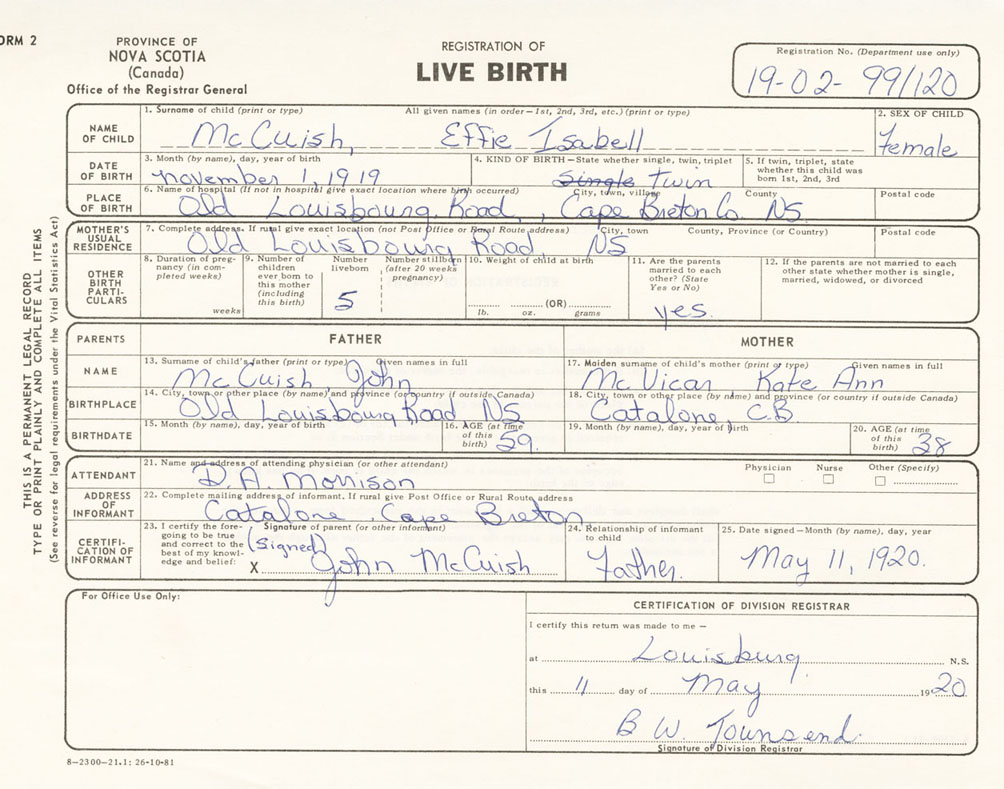 ORM 2
PROVINCE OF
NOVA SCOTIA
(Canada)
Office of the Registrar General
REGISTRATION OF
LIVE BIRTH
Registration No. (Department use only)
19-02-99/120
THIS IS A PERMANENT LEGAL RECORD
TYPE OR PRINT PLAINLY AND COMPLETE ALL ITEMS
(See reverse for legal requirements under the Vital Statistics Act)
NAME OF CHILD
1. Surname of child (print or type) All given names (in order—1st, 2nd, 3rd, etc.) (print or type)
McCuish, Effie Isabell
2. SEX OF CHILD
Female
DATE OF BIRTH
3. Month (by name), day, year of birth
November 1, 1919
4. KIND OF BIRTH—State whether single, twin, triplet
Single Twin
5. If twin, triplet, state whether this child was born 1st, 2nd, 3rd
PLACE OF BIRTH
6. Name of hospital (If not in hospital give exact location where birth occurred) City, town, village County Postal code
Old Louisbourg Road, Cape Breton Co. NS
MOTHER'S USUAL RESIDENCE
7. Complete address. If rural give exact location (not Post Office or Rural Route address) City, town County, Province (or Country) Postal code
Old Louisbourg Road NS
OTHER BIRTH PARTI-CULARS
8. Duration of preg-nancy (in com-pleted weeks)
weeks
9. Number of children ever born to this mother (including this birth)
Number liveborn
5
Number stillborn (after 20 weeks pregnancy)
10. Weight of child at birth
(OR)
lb. oz. grams
11. Are the parents married to each other? (State Yes or No)
yes.
12. If the parents are not married to each other state whether mother is single, married, widowed, or divorced
PARENTS FATHER MOTHER
NAME
13. Surname of child's father (print or type) Given names in full
McCuish John
17. Maiden surname of child's mother (print or type) Given names in full
McVicar Kate Ann
BIRTHPLACE
14. City, town or other place (by name) and province (or country if outside Canada)
Old Louisbourg Road NS
18. City, town or other place (by name) and province (or country if outside Canada)
Catalone C.B
BIRTHDATE
15. Month (by name), day, year of birth
16. AGE (at time of this birth)
59.
19. Month (by name), day, year of birth
20. AGE (at time of this birth)
38
ATTENDANT
21. Name and address of attending physician (or other attendant)
D. A. Morrison
Physician Nurse Other (Specify)
ADDRESS OF INFORMANT
22. Complete mailing address of informant. If rural give Post Office or Rural Route address
Catalone, Cape Breton
CERTIFI-CATION OF INFORMANT
23. I certify the fore-going to be true and correct to the best of my knowl-edge and belief:
Signature of parent (or other informant)
(Signed)
X John McCuish
24. Relationship of informant to child
Father.
25. Date signed—Month (by name), day, year
May 11, 1920.
For Office Use Only:
CERTIFICATION OF DIVISION REGISTRAR
I certify this return was made to me —
at Louisburg N.S.
this 11 day of May 1920
B W. Townsend.
Signature of Division Registrar
8-2300-21.1: 26-10-81